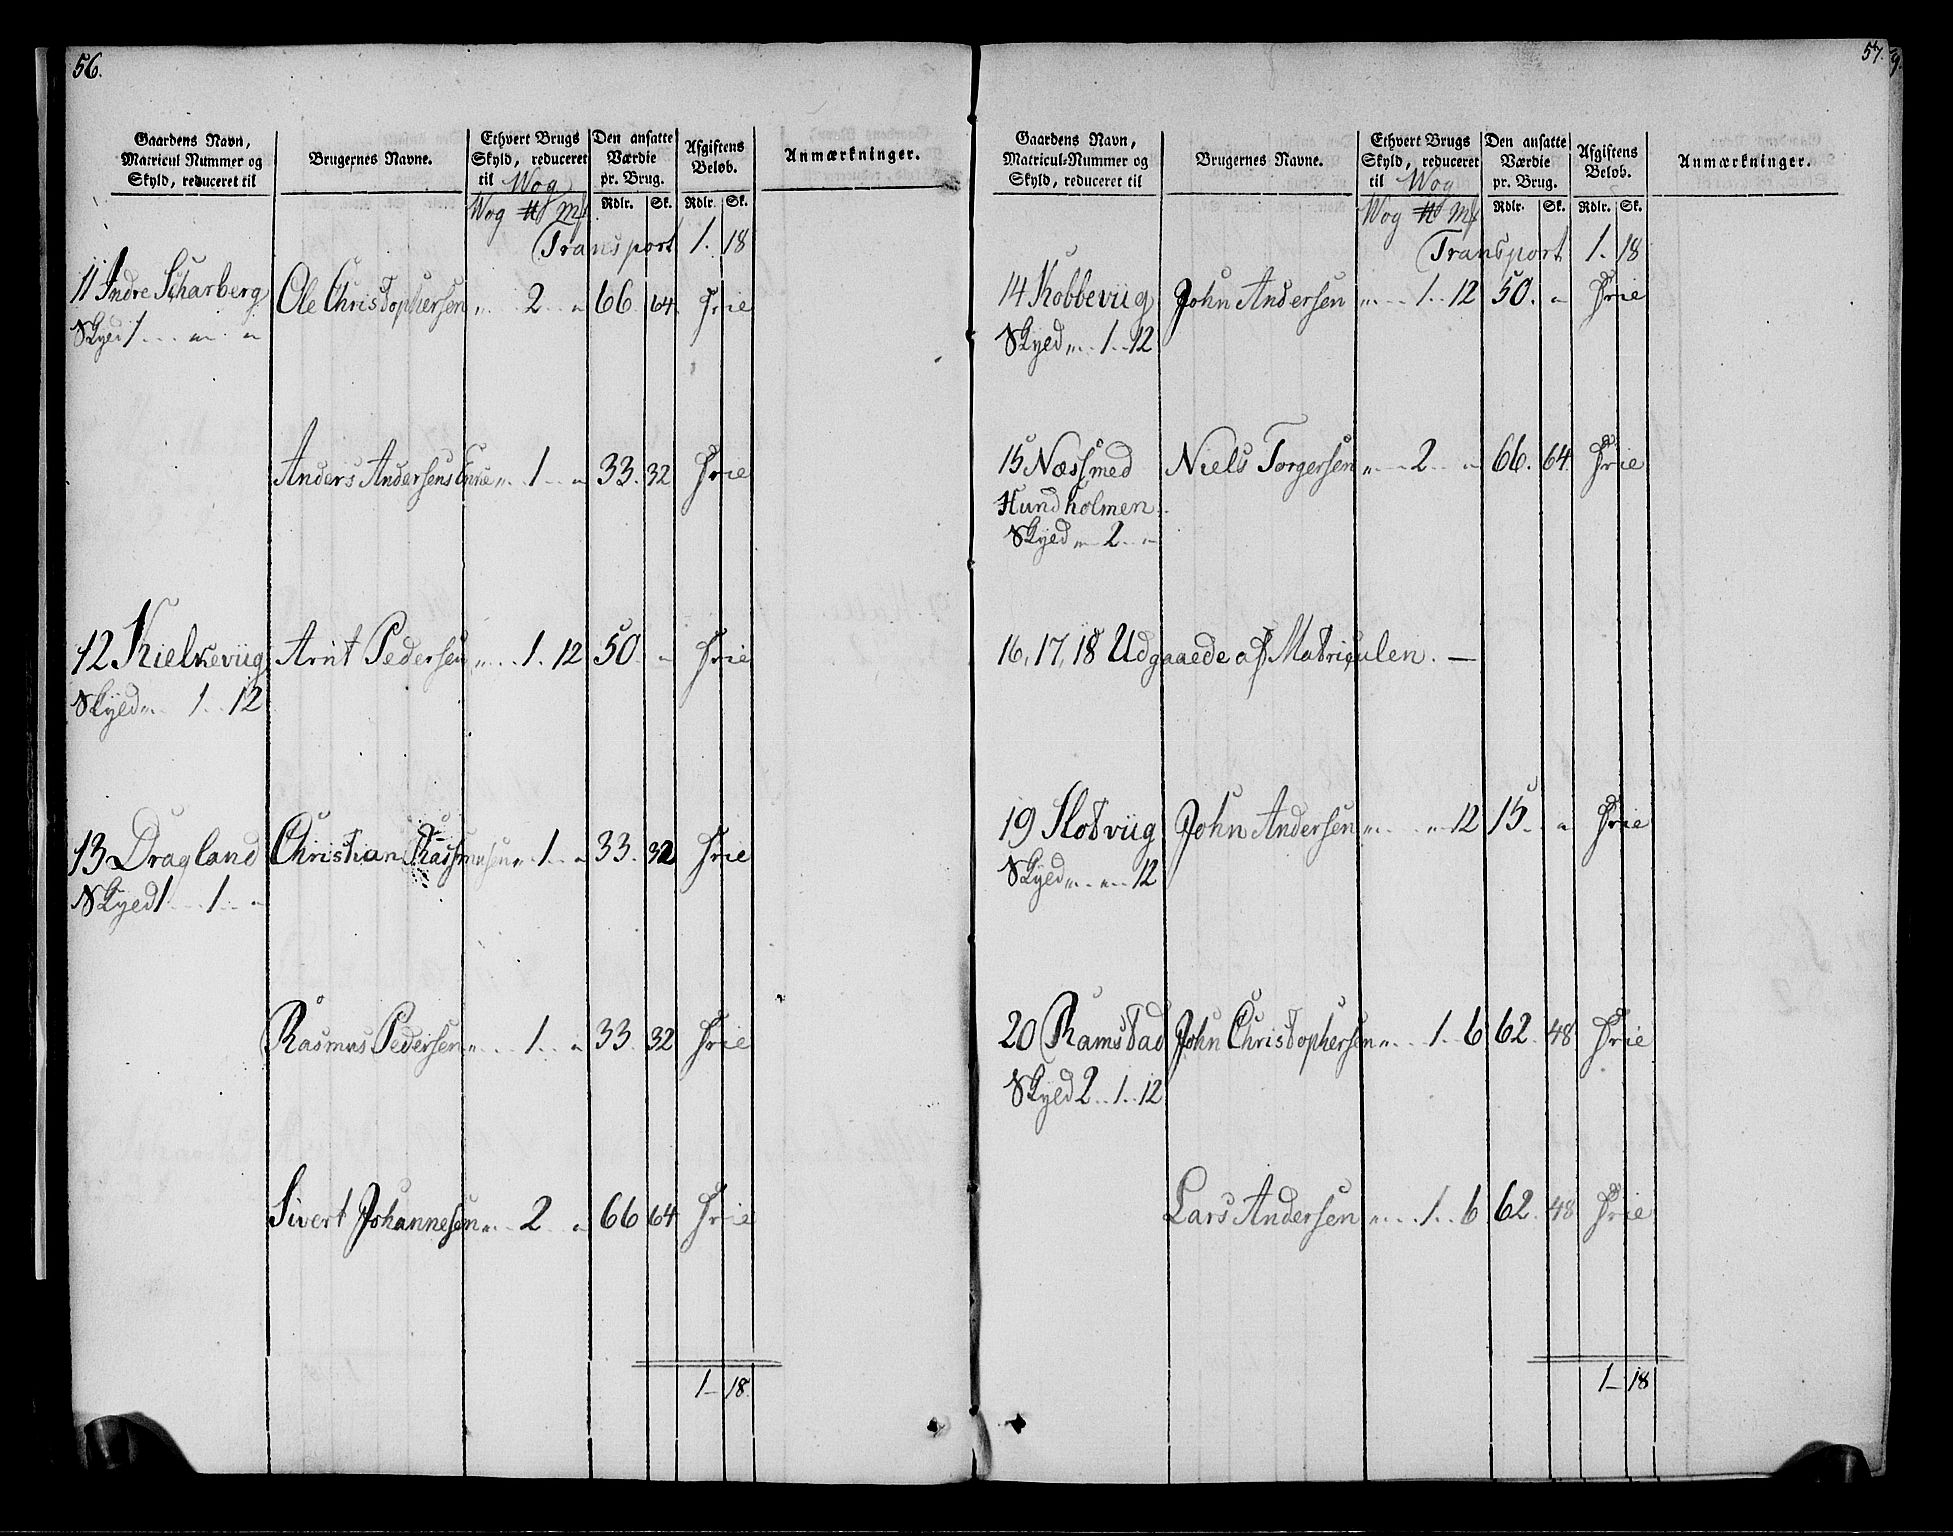 56.
Gaardens Navn, Matricul Nummer og Skyld, reduceret til
Brugernes Navne.
Ethvert Brugs Skyld, reduceret til Wog
Den ansatte Værdie pr. Brug.
Afgiftens Beløb.
Anmærkninger.
Wog ℔ Mk Rdlr. Sk. Rdlr. Sk.
Transport 1. 18
11 Indre Scharberg Ole Christophersen „ 2 „ 66 64 Frie
Skyld 1 „ „
Anders Andersens Enke „ 1 „ 33. 32 Frie
12 Kielkeviig Arnt Pedersen „ 1. 12 50 „ Frie
Skyld „ 1 12
13 Dragland Christian Rasmusen „ 1 „ 33. 32 Frie
Skyld 1 1 „
Rasmus Pedersen „ 1 „ 33 32 Frie
Sivert Johannesen „ 2 „ 66 64 Frie
1 – 18.
57.
Gaardens Navn, Matricul-Nummer og Skyld, reduceret til
Brugernes Navne.
Ethvert Brugs Skyld, reduceret til Wog
Den ansatte Værdie pr. Brug.
Afgiftens Beløb.
Anmærkninger.
Wog ℔ Mk Rdlr. Sk. Rdlr. Sk.
Transport 1. 18
14 Kobbeviig John Andersen „ 1 12 50. „ Frie
Skyld „ 1 12
15 Næss med Niels Torgersen „ 2 „ 66. 64 Frie
Hundholmen
Skyld „ 2 „
16, 17, 18 Udgaaede af Matriculen. —
19 Slotviig John Andersen „ „ 12 15 „ Frie
Skyld „ „ 12
20 Ramstad John Christophersen „ 1 6 62 48 Frie
Skyld 2 1 12
Lars Andersen „ 1 6 62 48 Frie
1 – 18